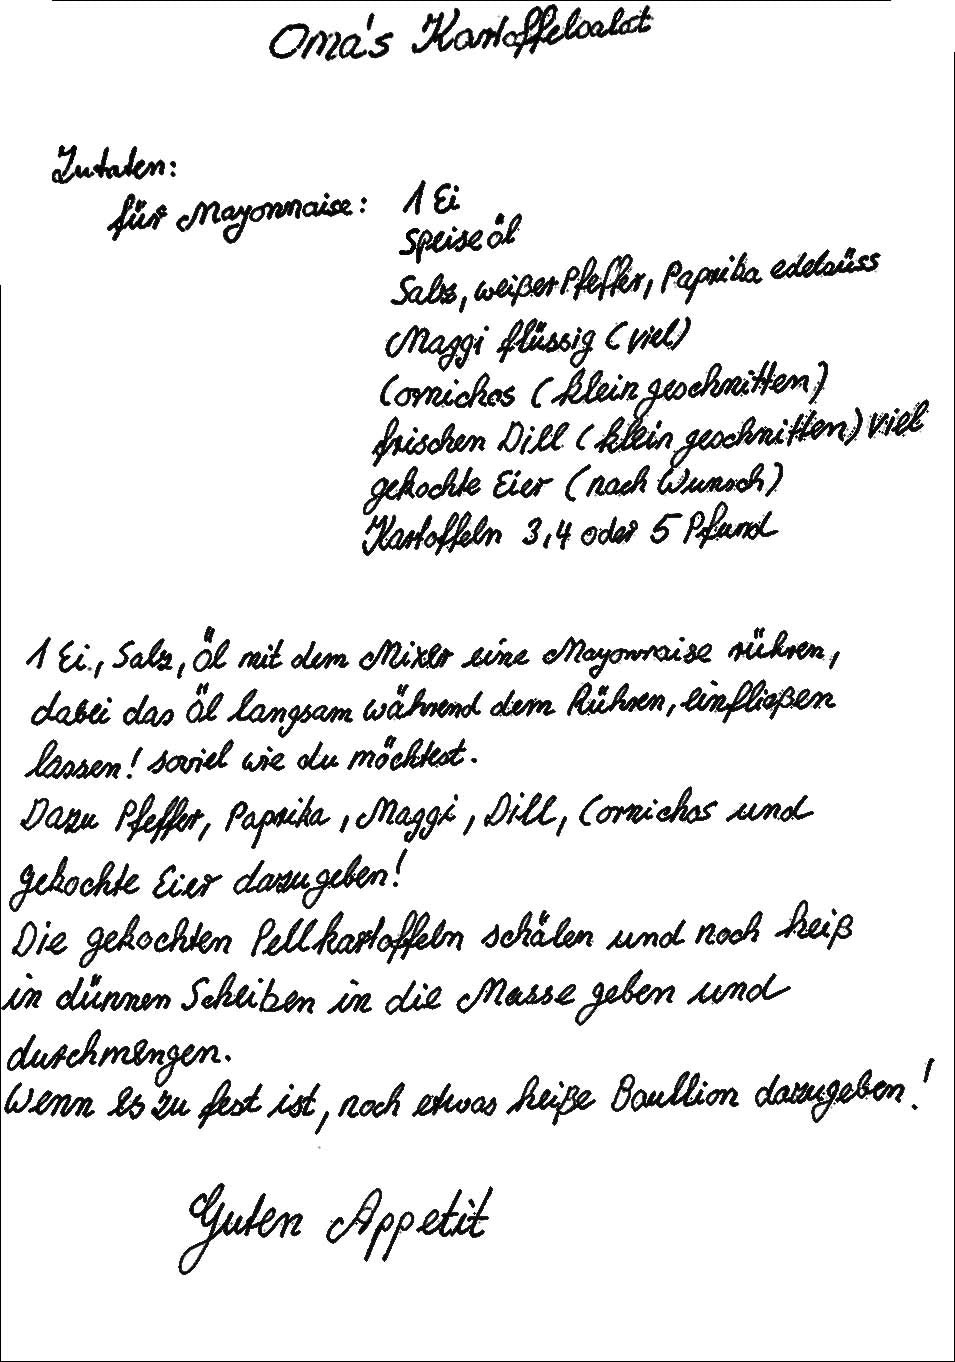 Oma's Kartoffelsalat
Zutaten:
für Mayonnaise: 1 Ei
Speiseöl
Salz, weißer Pfeffer, Paprika edelsüss
Maggi flüssig (viel)
Cornichos (klein geschnitten)
frischen Dill (klein geschnitten) viel
gekochte Eier (nach Wunsch)
Kartoffeln 3,4 oder 5 Pfund
1 Ei, Salz, Öl mit dem Mixer eine Mayonnaise rühren,
dabei das Öl langsam während dem Rühren, einfließen
lassen! soviel wie du möchtest.
Dazu Pfeffer, Paprika, Maggi, Dill, Cornichos und
gekochte Eier dazugeben!
Die gekochten Pellkartoffeln schälen und noch heiß
in dünnen Scheiben in die Masse geben und
durchmengen.
Wenn es zu fest ist, noch etwas heiße Boullion dazugeben!
Guten Appetit